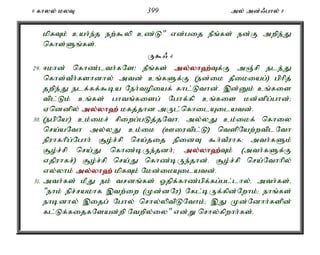 8 காலல் மலவு 399 அல் அன்ஃபால் 8
மிகவும் உயர்ந்த நற்கூலி உண்டு" என்பதை நீங்கள் நன்கு அறிந்து
கொள்ளுங்கள்.
ருகூஃ 4
29. ஈமான் கொண்டவர்களே! நீங்கள் அல்லாஹ்வுக்கு அஞ்சி நடந்து
கொள்வீர்களானால் அவன் உங்களுக்கு (நன்மை தீமையைப்) பிரித்
தறிந்து நடக்கக்கூடிய நேர்வழியைக் காட்டுவான். இன்னும் உங்களை
விட்டும் உங்கள் பாவங்களைப் போக்கி உங்களை மன்னிப்பான்;
ஏனெனில் அல்லாஹ் மகத்தான அருட்கொடையுடையவன்.
30. (நபியே!) உம்மைச் சிறைப்படுத்தவோ, அல்லது உம்மைக் கொலை
செய்யவோ அல்லது உம்மை (ஊரைவிட்டு) வெளியேற்றிவிடவோ
நிராகரிப்போர் சூழ்ச்சி செய்ததை நினைவு கூர்வீராக; அவர்களும்
சூழ்ச்சி செய்து கொண்டிருந்தனர்; அல்லாஹ்வும் (அவர்களுக்கு
எதிராகச்) சூழ்ச்சி செய்து கொண்டிருந்தான். சூழ்ச்சி செய்வோரில்
எல்லாம் அல்லாஹ் மிகவும் மேன்மையுடையவன்.
31. அவர்கள் மீது நம் வசனங்கள் ஓதிக்காண்பிக்கப்பட்டால், அவர்கள்,
"நாம் நிச்சயமாக இவற்றை (முன்னரே) கேட்டிருக்கின்றோம்; நாங்கள்
நாடினால் இதைப் போல் சொல்லிவிடுவோம்; இது முன்னோர்களின்
கட்டுக்கதைகளேயன்றி வேறில்லை" என்று சொல்கிறார்கள்.